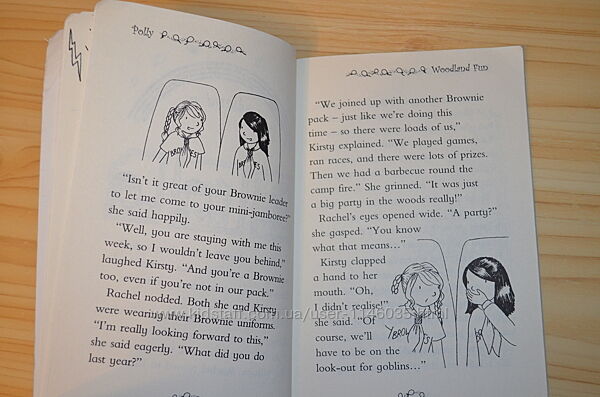 Polly
"Isn't it great of your Brownie leader
to let me come to your mini-jamboree?"
she said happily.
"Well, you are staying with me this
week, so I wouldn't leave you behind,"
laughed Kirsty. "And you're a Brownie
too, even if you're not in our pack."
Rachel nodded. Both she and Kirsty
were wearing their Brownie uniforms.
"I'm really looking forward to this,"
she said eagerly. "What did you do
last year?"
Woodland Fun
"We joined up with another Brownie
pack – just like we're doing this
time – so there were loads of us,"
Kirsty explained. "We played games,
ran races, and there were lots of prizes.
Then we had a barbecue round the
camp fire." She grinned. "It was just
a big party in the woods really!"
Rachel's eyes opened wide. "A party?"
she gasped. "You know
what that means…"
Kirsty clapped
a hand to her
mouth. "Oh,
I didn't realise!"
she said. "Of
course, we'll
have to be on the
look-out for goblins…"